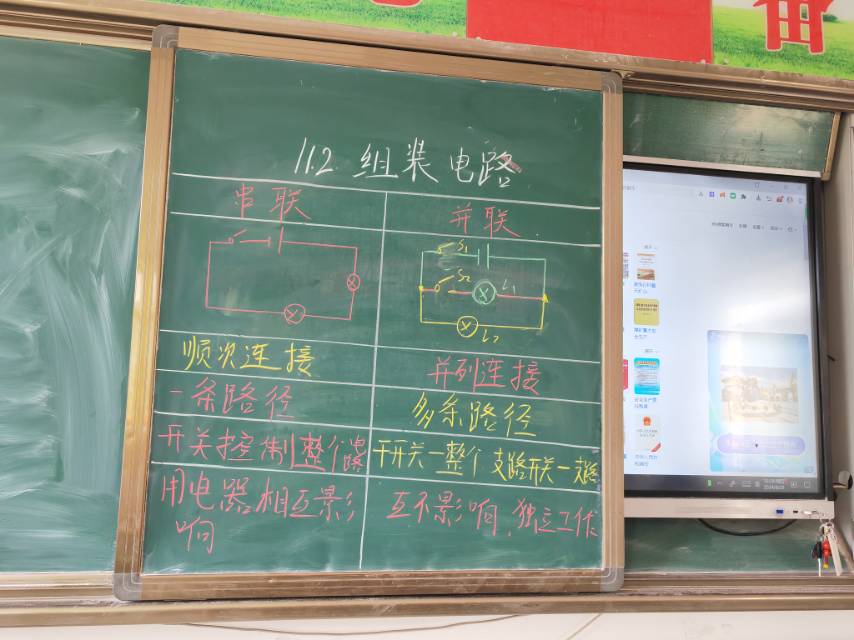 11.2 组装电路
串联
并联
S₁
S₂
L₁
L₂
顺次连接
并列连接
一条路径
多条路径
开关控制整个电路
干开关一整个 支路开关一支路
用电器相互影响
互不影响,独立工作